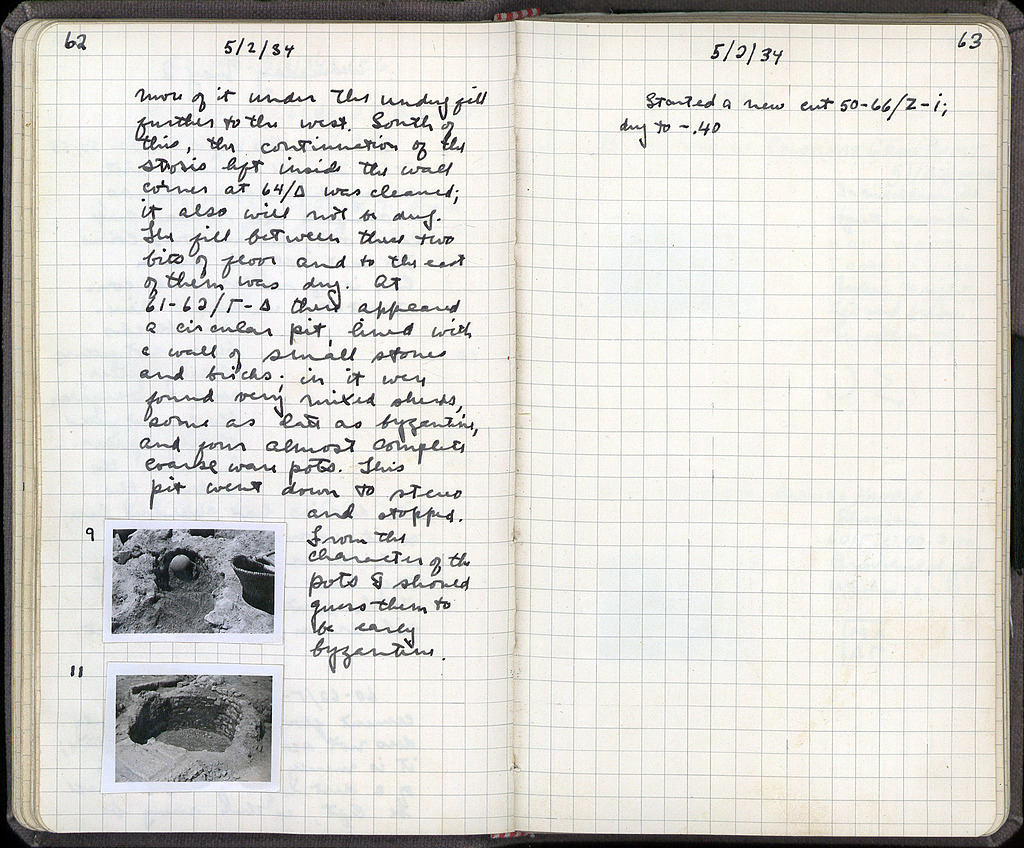 62
5/2/34
more of it under this undug fill
further to the west. South of
this, the continuation of the
stosis left inside the wall
corner at 64/Δ was cleaned;
it also will not be dug.
The fill between these two
bits of floor and to the east
of them was dug. At
61-62/Γ-Δ there appeared
a circular pit, lined with
a wall of small stones
and bricks; in it were
found very mixed sherds,
some as late as byzantine,
and four almost complete
coarse ware pots. This
pit went down to stereo
and stopped.
9
From the
character of the
pots I should
guess them to
be early
byzantine.
11
63
5/2/34
Started a new cut 50-66/Z-i;
dug to -.40